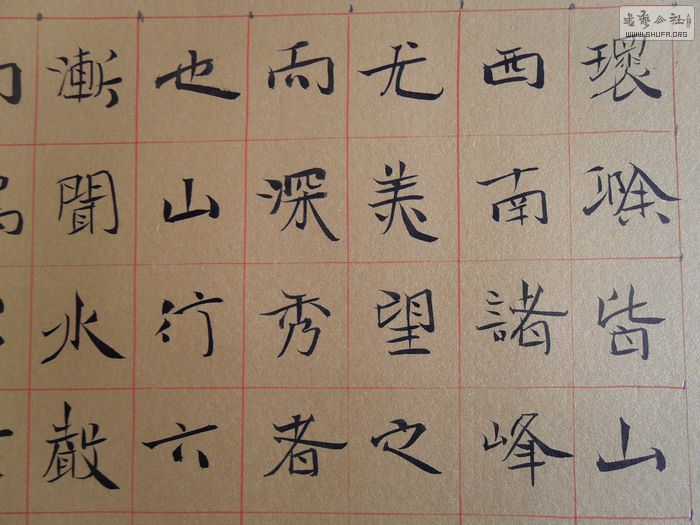 環滁皆山
西南諸峰
尤美望之
而深秀者
也山行六
漸聞水聲
書藝公社
WWW.SHUFA.ORG